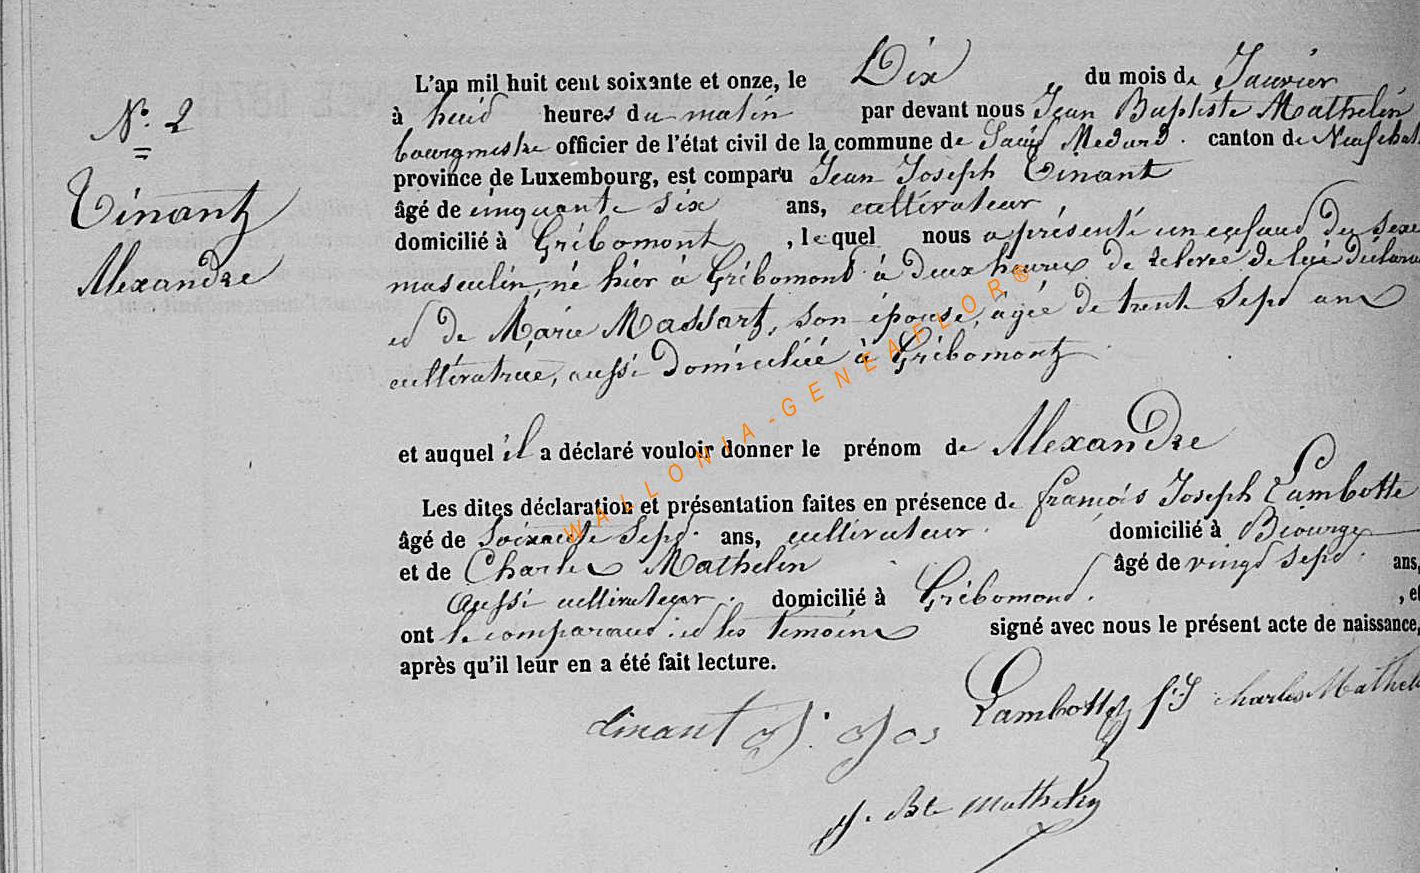 N.º 2
Tinant
Alexandre
L'an mil huit cent soixante et onze, le Dix du mois de Janvier
à huid heures du matin par devant nous Jean Baptiste Mathelin
bourgmestre officier de l'état civil de la commune de Saint Medard. canton de Neufchat
province de Luxembourg, est comparu Jean Joseph Tinant
âgé de cinquante six ans, cultivateur,
domicilié à Gribomont, lequel nous a présenté un enfand du sexe
masculin, né hier à Gribomond à deux heures de relevée de lui déclara
et de Marie Massart, son épouse, âgée de trente sept ans
cultivatrice, aussi domiciliée à Gribomont
et auquel il a déclaré vouloir donner le prénom de Alexandre
Les dites déclaration et présentation faites en présence de françois Joseph Lambotte
âgé de Soixante Sept ans, cultivateur domicilié à Biourge
et de Charles Mathelin âgé de vingt sept ans,
aussi cultivateur. domicilié à Gribomond. , et
ont le comparant et les témoins signé avec nous le présent acte de naissance,
après qu'il leur en a été fait lecture.
tinant J. Jos Lambotte f J Charles Mathel
J. Bte Mathelin
WALLONIA-GENEAFLOR®